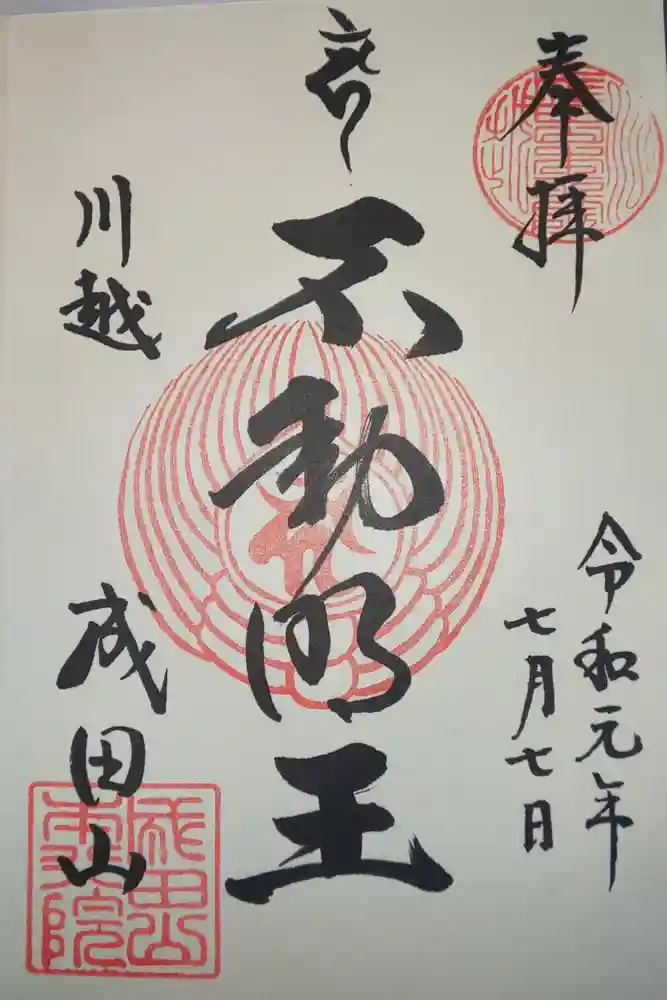 奉拝
令和元年
七月七日
不動明王
川越
成田山
成田山
本行院